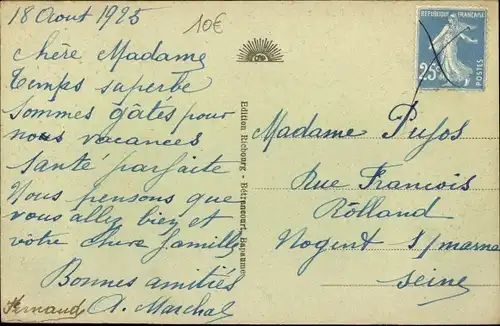 18 Aout 1925
10€
Chère Madame
Temps superbe
sommes gâtés pour
nos vacances
Santé parfaite
Nous pensons que
vous allez bien et
votre chère famille
Bonnes amitiés
A. Marchal
Fernand
Edition Richourg - Bétrancourt, Bapaume
REPUBLIQUE FRANÇAISE
25c
POSTES
Madame Pujos
Rue Francois
Rolland
Nogent s/marne
Seine